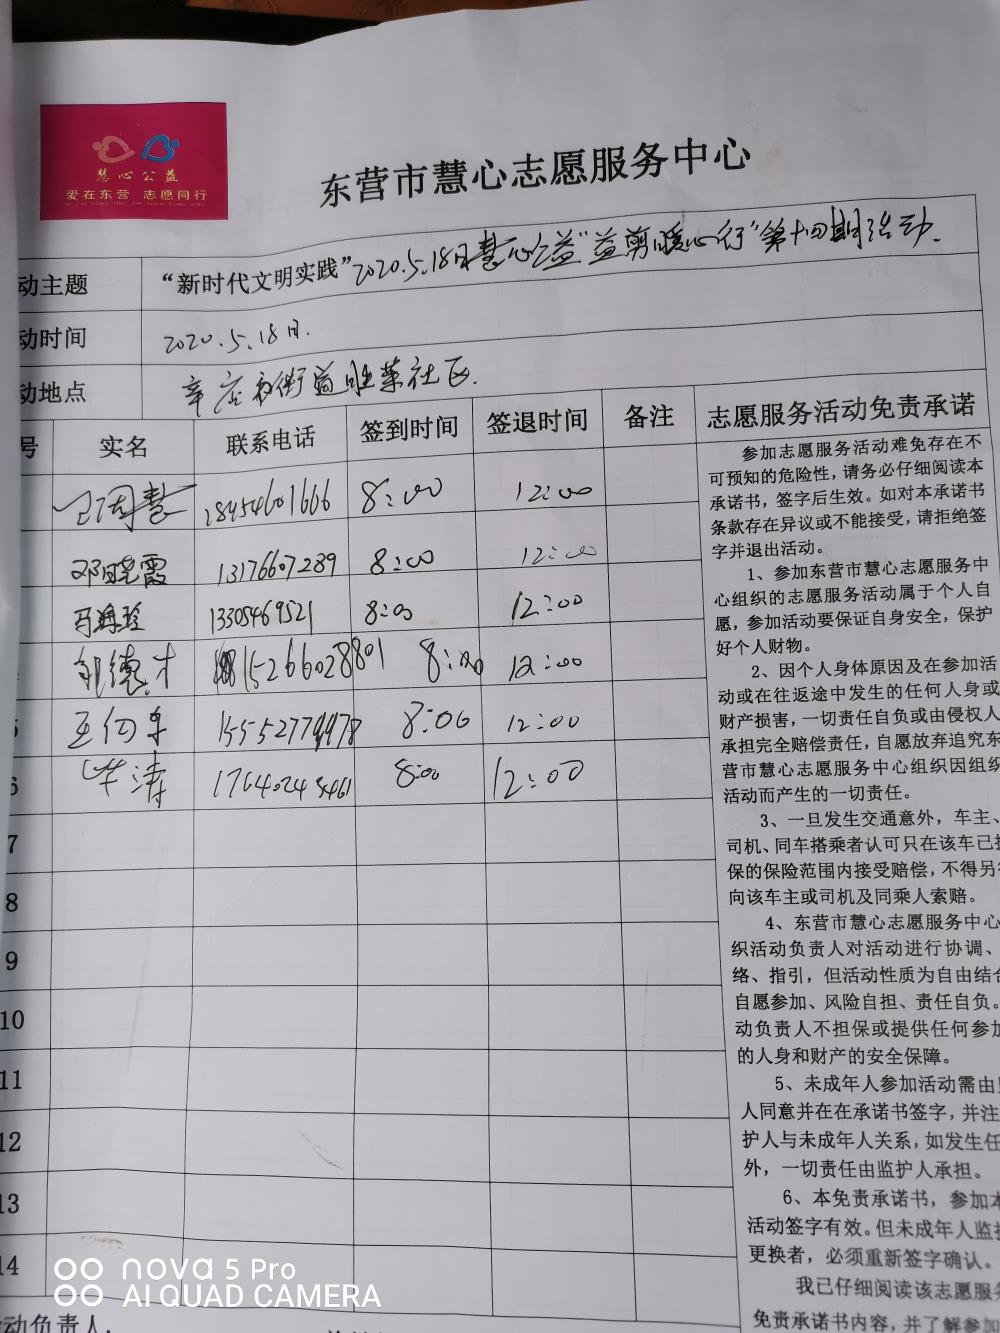 慧心公益
爱在东营 志愿同行
东营市慧心志愿服务中心
动主题 “新时代文明实践”2020.5.18日慧心公益“益剪暖心行”第十四期活动.
动时间 2020.5.18日.
动地点 辛店街道胜莱社区.
号 实名 联系电话 签到时间 签退时间 备注 志愿服务活动免责承诺
18954601666 8:00 12:00
邓晓霞 13176607289 8:00 12:00
13305469521 8:00 12:00
郭德才 15266028801 8:00 12:00
8:00 12:00
6 毕涛 8:00 12:00
7
8
9
10
11
12
13
14
参加志愿服务活动难免存在不
可预知的危险性，请务必仔细阅读本
承诺书，签字后生效。如对本承诺书
条款存在异议或不能接受，请拒绝签
字并退出活动。
1、参加东营市慧心志愿服务中
心组织的志愿服务活动属于个人自
愿，参加活动要保证自身安全，保护
好个人财物。
2、因个人身体原因及在参加活
动或在往返途中发生的任何人身或
财产损害，一切责任自负或由侵权人
承担完全赔偿责任，自愿放弃追究东
营市慧心志愿服务中心组织因组织
活动而产生的一切责任。
3、一旦发生交通意外，车主、
司机、同车搭乘者认可只在该车已投
保的保险范围内接受赔偿，不得另行
向该车主或司机及同乘人索赔。
4、东营市慧心志愿服务中心
织活动负责人对活动进行协调、
络、指引，但活动性质为自由结合
自愿参加、风险自担、责任自负。
动负责人不担保或提供任何参加
的人身和财产的安全保障。
5、未成年人参加活动需由
人同意并在在承诺书签字，并注
护人与未成年人关系，如发生任
外，一切责任由监护人承担。
6、本免责承诺书，参加本
活动签字有效。但未成年人监护
更换者，必须重新签字确认。
我已仔细阅读该志愿服务
免责承诺书内容，并了解参加
动负责人:
nova 5 Pro
AI QUAD CAMERA